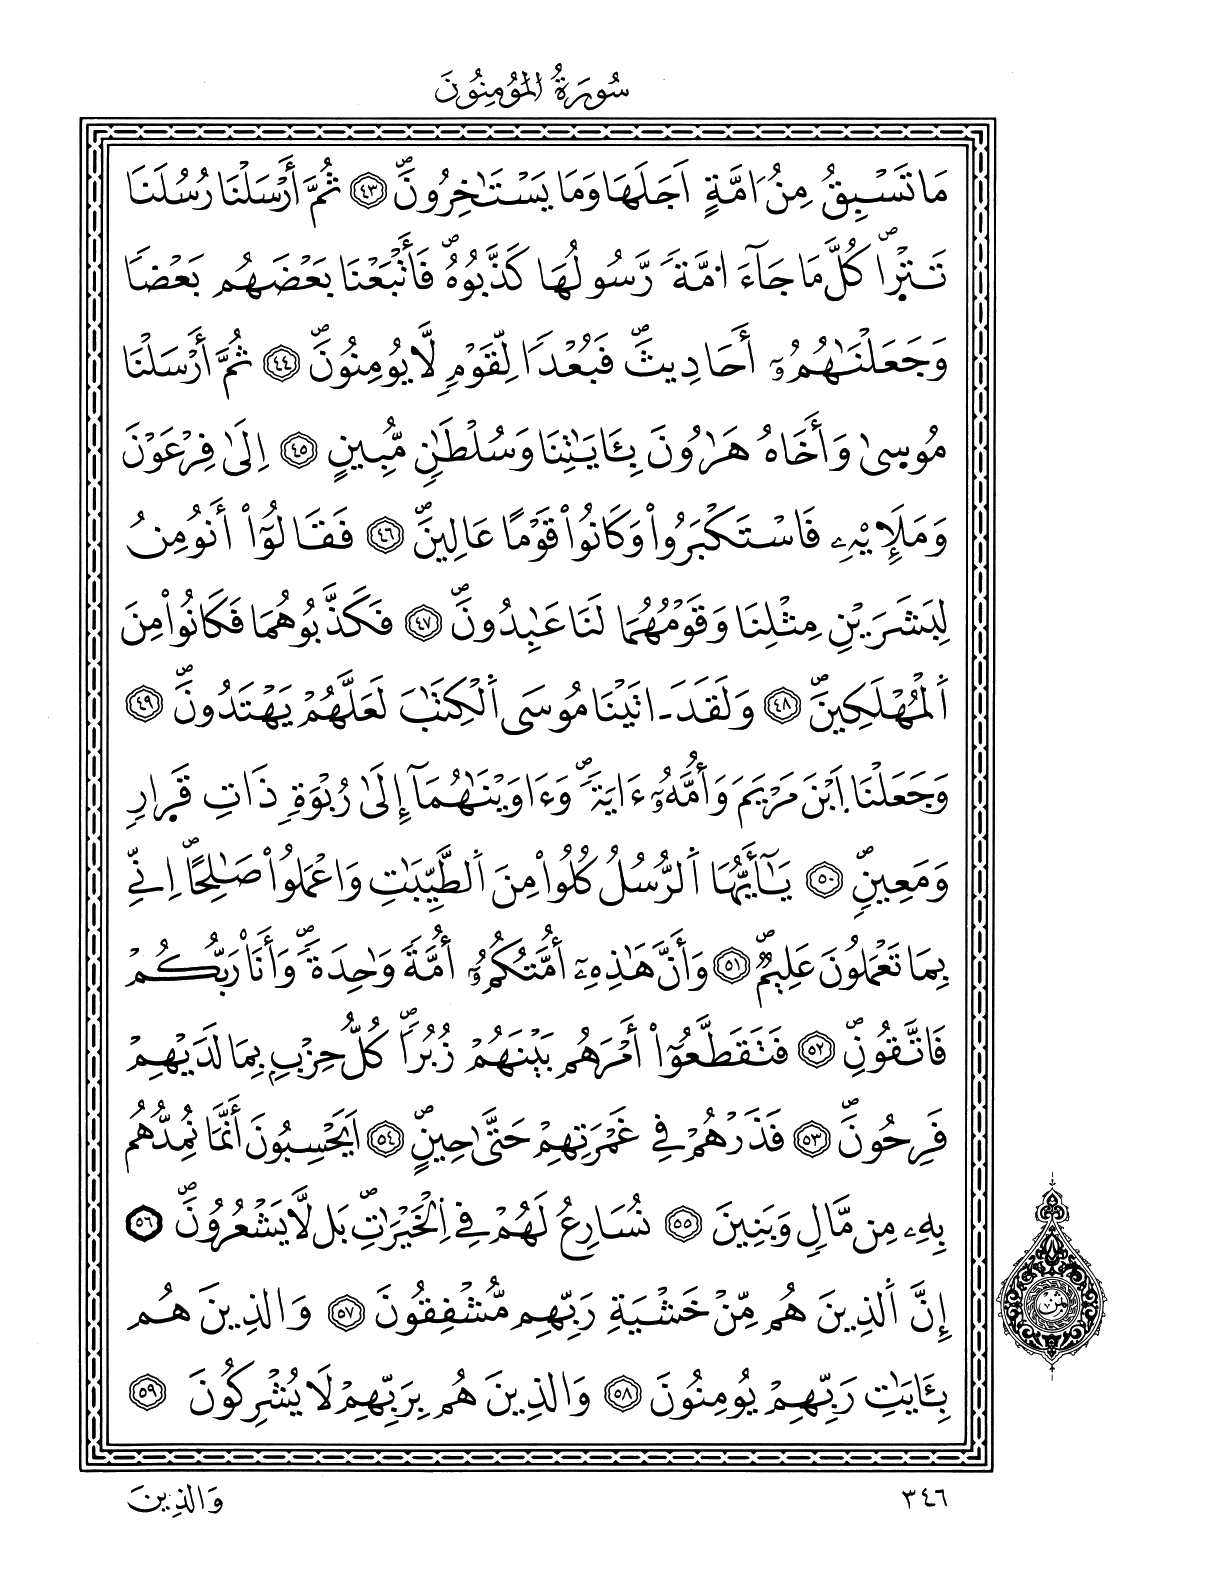 سُورَةُ الْمُؤْمِنُونَ
مَا تَسْبِقُ مِنُ ا۟مَّةٍ اَجَلَهَا وَمَا يَسْتَٰخِرُونَۖ ٤٣ ثُمَّ أَرْسَلْنَا رُسُلَنَا
تَتْرٜاۖ كُلَّ مَا جَآءَ ا۟مَّةٗ رَّسُولُهَا كَذَّبُوهُۖ فَأَتْبَعْنَا بَعْضَهُم بَعْضاٗ
وَجَعَلْنَٰهُمُۥٓ أَحَادِيثَۖ فَبُعْداٗ لِّقَوْمٖ لَّا يُومِنُونَۖ ٤٤ ثُمَّ أَرْسَلْنَا
مُوسٜىٰ وَأَخَاهُ هَٰرُونَ بِـَٔايَٰتِنَا وَسُلْطَٰنٖ مُّبِينٍ ٤٥ اِلَىٰ فِرْعَوْنَ
وَمَلَإِيْهِۦ فَاسْتَكْبَرُواْ وَكَانُواْ قَوْماً عَالِينَۖ ٤٦ فَقَالُوٓاْ أَنُومِنُ
لِبَشَرَيْنِ مِثْلِنَا وَقَوْمُهُمَا لَنَا عَٰبِدُونَۖ ٤٧ فَكَذَّبُوهُمَا فَكَانُواْ مِنَ
اَ۬لْمُهْلَكِينَۖ ٤٨ وَلَقَدَ اٰتَيْنَا مُوسَى اَ۬لْكِتَٰبَ لَعَلَّهُمْ يَهْتَدُونَۖ ٤٩
وَجَعَلْنَا اَ۪بْنَ مَرْيَمَ وَأُمَّهُۥٓ ءَايَةٗۖ وَءَاوَيْنَٰهُمَآ إِلَىٰ رُبْوَةٖ ذَاتِ قَرٜارٖ
وَمَعِينٖۖ ٥٠ يَٰٓأَيُّهَا اَ۬لرُّسُلُ كُلُواْ مِنَ اَ۬لطَّيِّبَٰتِ وَاعْمَلُواْ صَٰلِحاًۖ اِنِّے
بِمَا تَعْمَلُونَ عَلِيمٞۖ ٥١ وَأَنَّ هَٰذِهِۦٓ أُمَّتُكُمُۥٓ أُمَّةٗ وَٰحِدَةٗۖ وَأَنَا۠ رَبُّكُمْ
فَاتَّقُونِۖ ٥٢ فَتَقَطَّعُوٓاْ أَمْرَهُم بَيْنَهُمْ زُبُراٗۖ كُلُّ حِزْبِۢ بِمَا لَدَيْهِمْ
فَرِحُونَۖ ٥٣ فَذَرْهُمْ فِے غَمْرَتِهِمْ حَتَّىٰ حِينٍۖ ٥٤ اَيَحْسِبُونَ أَنَّمَا نُمِدُّهُم
بِهِۦ مِن مَّالٖ وَبَنِينَ ٥٥ نُسَارِعُ لَهُمْ فِے اِ۬لْخَيْرَٰتِۖ بَل لَّا يَشْعُرُونَۖ ٥٦
إِنَّ اَ۬لذِينَ هُم مِّنْ خَشْيَةِ رَبِّهِم مُّشْفِقُونَ ٥٧ وَالذِينَ هُم
بِـَٔايَٰتِ رَبِّهِمْ يُومِنُونَ ٥٨ وَالذِينَ هُم بِرَبِّهِمْ لَا يُشْرِكُونَ ٥٩
ثمن
وَالذِينَ
٣٤٦